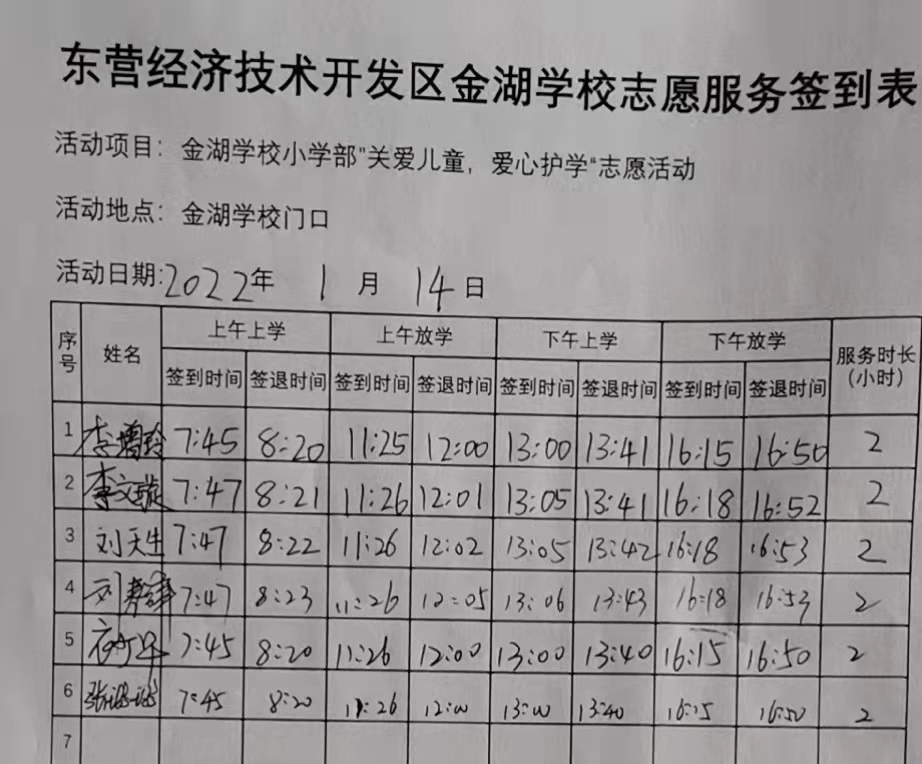 东营经济技术开发区金湖学校志愿服务签到表
活动项目：金湖学校小学部"关爱儿童，爱心护学"志愿活动
活动地点：金湖学校门口
活动日期:2022年 1 月 14 日
序号 姓名 上午上学 上午放学 下午上学 下午放学 服务时长（小时）
签到时间 签退时间 签到时间 签退时间 签到时间 签退时间 签到时间 签退时间
1 李增玲 7:45 8:20 11:25 12:00 13:00 13:41 16:15 16:50 2
2 李文璇 7:47 8:21 11:26 12:01 13:05 13:41 16:18 16:52 2
3 刘天生 7:47 8:22 11:26 12:02 13:05 13:42 16:18 16:53 2
4 刘 7:47 8:23 11:26 12:05 13:06 13:43 16:18 16:53 2
5 7:45 8:20 11:26 12:00 13:00 13:40 16:15 16:50 2
6 7:45 8:20 11:26 12:00 13:00 13:40 16:15 16:50 2
7